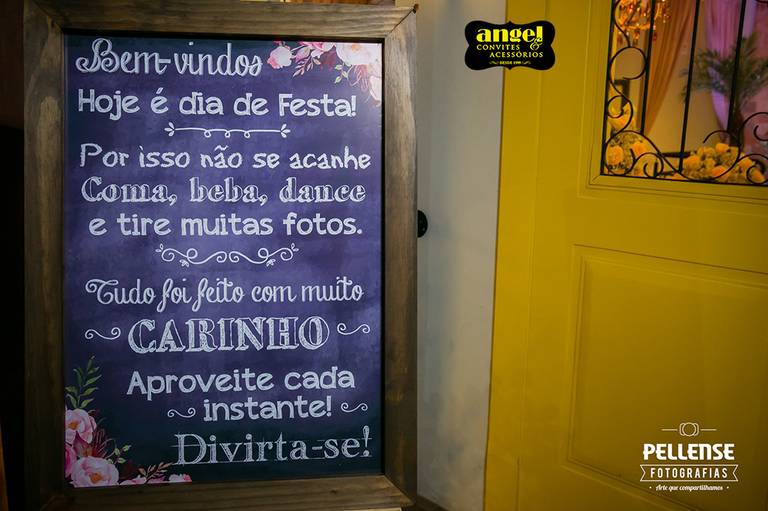 Bem-vindos
Hoje é dia de Festa!
Por isso não se acanhe
Coma, beba, dance
e tire muitas fotos.
Tudo foi feito com muito
CARINHO
Aproveite cada
instante!
Divirta-se!
angel
CONVITES &
ACESSÓRIOS
DESDE 1999
PELLENSE
FOTOGRAFIAS
Arte que compartilhamos